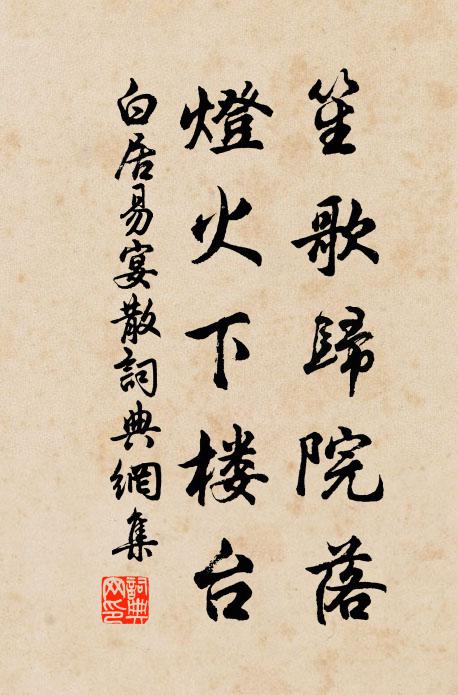 笙歌歸院落
燈火下楼台
白居易宴散詞典網集
詞典網印